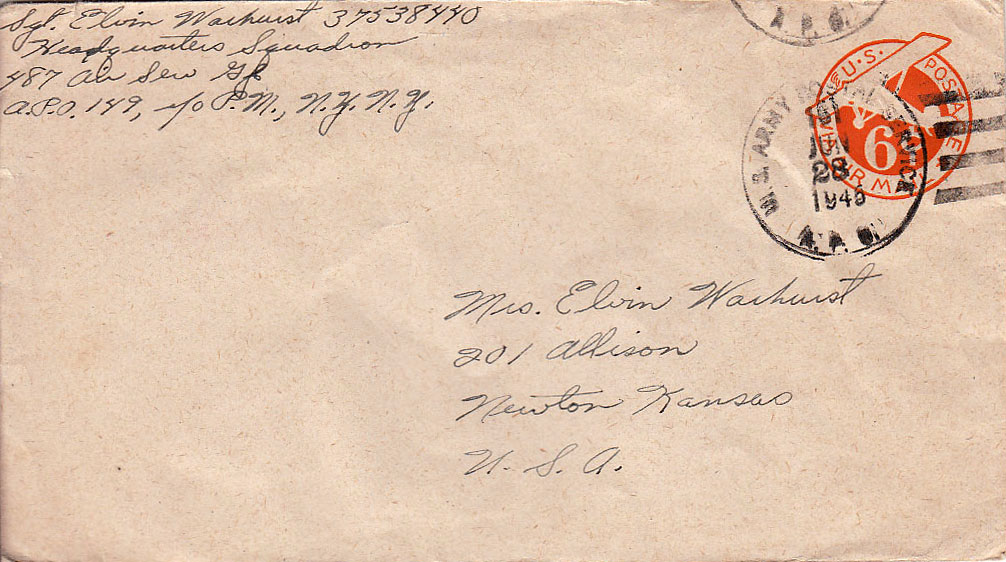 Sgt. Elvin Warhurst 37538440
Headquarters Squadron
487 Air Serv Gp
A.P.O. 149, c/o P.M., N.Y. N.Y.
A. P. O.
U.S. POSTAGE
VIA AIR MAIL
6
U.S. ARMY POSTAL SERVICE
JUN
28
1945
A. P. O.
Mrs. Elvin Warhurst
201 Allison
Newton Kansas
U. S. A.